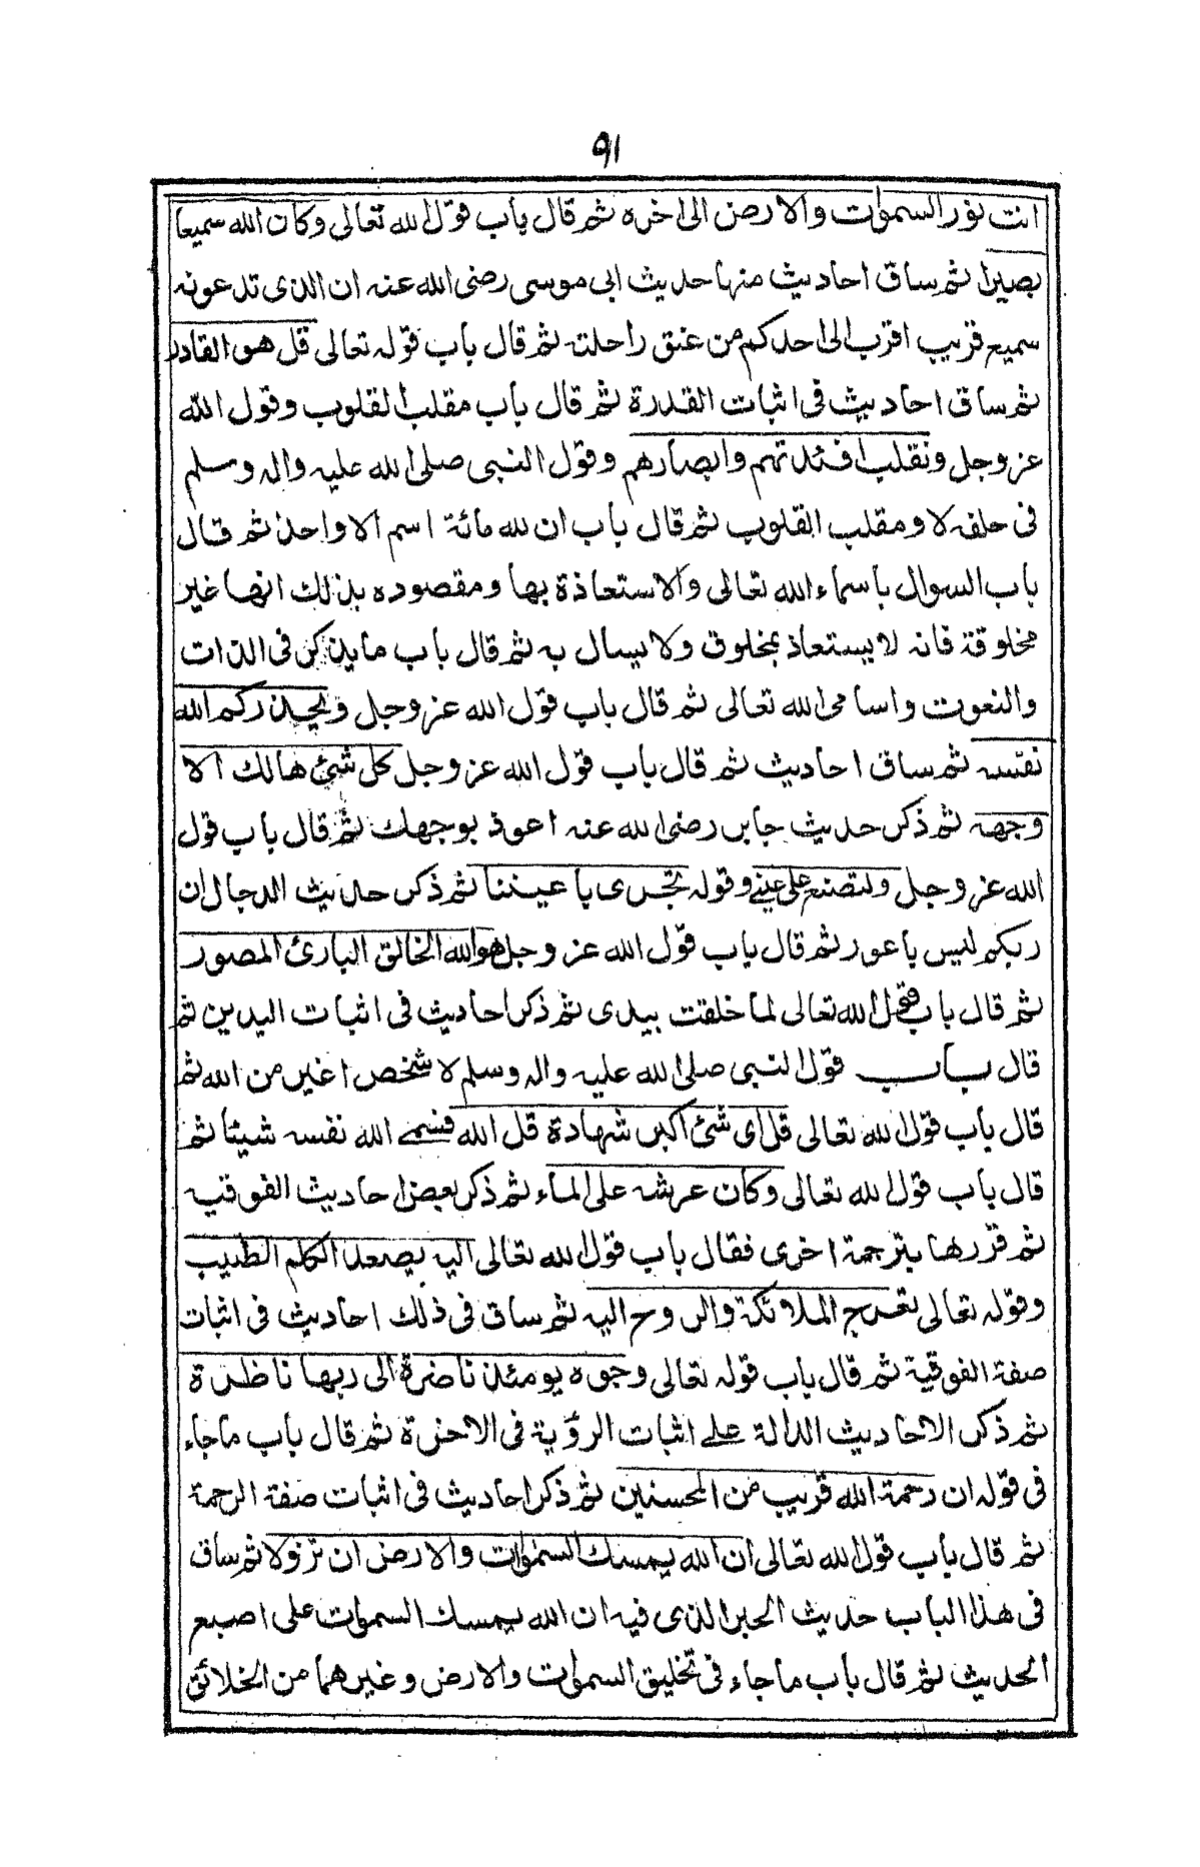 ٩١
انت نور السموات والارض الى اخره ثم قال باب قول الله تعالى وكان الله سميعا
بصيرا ثم ساق احاديث منها حديث ابى موسى رضى الله عنه ان الذى تدعونه
سميع قريب اقرب الى احدكم من عنق راحلته ثم قال باب قوله تعالى قل هو القادر
ثم ساق احاديث فى اثبات القدرة ثم قال باب مقلب القلوب وقول الله
عز وجل ونقلب افئدتهم وابصارهم وقول النبى صلى الله عليه واله وسلم
فى حلفه لا ومقلب القلوب ثم قال باب ان لله مائة اسم الا واحد ثم قال
باب السوال باسماء الله تعالى والاستعاذة بها ومقصوده بذلك انها غير
مخلوقة فانه لا يستعاذ بمخلوق ولا يسال به ثم قال باب ما يذكر فى الذات
والنعوت واسامى الله تعالى ثم قال باب قول الله عز وجل ويحذركم الله
نفسه ثم ساق احاديث ثم قال باب قول الله عز وجل كل شئ هالك الا
وجهه ثم ذكر حديث جابر رضى الله عنه اعوذ بوجهك ثم قال باب قول
الله عز وجل ولتصنع على عينے وقوله تجرى باعيننا ثم ذكر حديث الدجال ان
ربكم ليس باعور ثم قال باب قول الله عز وجل هو الله الخالق البارئ المصور
ثم قال باب قول الله تعالى لما خلقت بيدى ثم ذكر احاديث فى اثبات اليدين ثم
قال باب قول النبى صلى الله عليه واله وسلم لا شخص اغير من الله ثم
قال باب قول الله تعالى قل اى شئ اكبر شهادة قل الله فسمے الله نفسه شيئا ثم
قال باب قول الله تعالى وكان عرشه على الماء ثم ذكر بعض احاديث الفوقيه
ثم قررها بترجمة اخرى فقال باب قول الله تعالى اليه يصعد الكلم الطيب
وقوله تعالى تعرج الملائكة والروح اليه ثم ساق فى ذلك احاديث فى اثبات
صفة الفوقية ثم قال باب قوله تعالى وجوه يومئذ ناضرة الى ربها ناظرة
ثم ذكر الاحاديث الدالة علے اثبات الرؤية فى الاخرة ثم قال باب ماجاء
فى قوله ان رحمة الله قريب من المحسنين ثم ذكر احاديث فى اثبات صفة الرحمة
ثم قال باب قول الله تعالى ان الله يمسك السموات والارض ان تزولا ثم ساق
فى هذا الباب حديث الحبر الذى فيه ان الله يمسك السموات على اصبع
الحديث ثم قال باب ماجاء فى تخليق السموات والارض وغيرهما من الخلائق